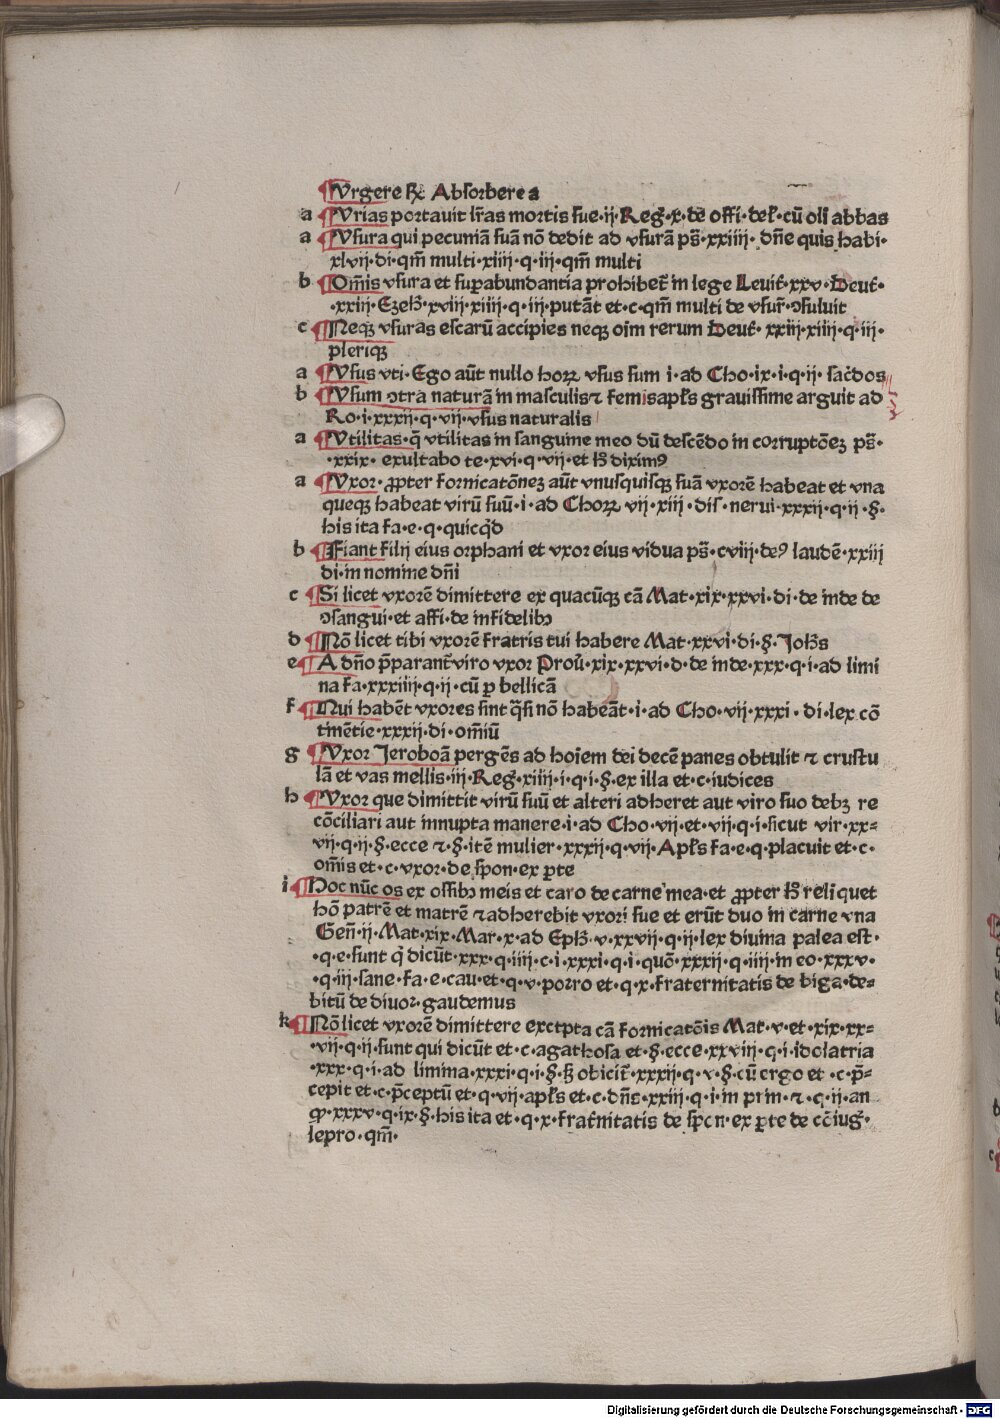 ¶Vrgere ß Absorbere a
a ¶Vrias portauit lr̄as mortis sue·ij·Reg̃·x·de offi·del̃·cū oli abbas
a ¶Vsura qui pecuniā suā nō dedit ad vsurā ps̄·xxiiii·dn̄e quis habi·
xlvij·di·qm̄ multi·xiiij·q·iij·qm̄ multi
b ¶Om̄is vsura et suꝑabundantia prohibet̃ in lege Leuit̃·xxv·Deut̃·
·xxiij·Ezeh̃·xviij·xiiij·q·iij·putāt et·c·qm̄ multi de vsur̃·ↄsuluit
c ¶Neqꝫ vsuras escarū accipies neqꝫ oīm rerum Deut̃·xxiij·xiiij·q·iij·
pleriqꝫ
a ¶Vsus vti·Ego aūt nullo hoꝝ vsus sum i·ad Cho·ix·i·q·ij·sac̄dos
b ¶Vsum ↄtra naturā in masculis ⁊ femis apl̄s grauissime arguit ad
Ro·i·xxxij·q·vij·vsus naturalis
a ¶Vtilitas·q̄ vtilitas in sanguine meo dū descēdo in corruptōeꝫ ps̄·
·xxix·exultabo te·xvi·q·vij·et h̄ diximꝰ
a ¶Vxor·ꝓpter fornicatōneꝫ aūt vnusquisqꝫ suā vxorē habeat et vna
queqꝫ habeat virū suū·i·ad Choꝝ vij·xiij·dis·nerui·xxxij·q·ij·§·
his ita fa·e·q·quicq̄d
b ¶Fiant filij eius orphani et vxor eius vidua ps̄·cviij·deꝰ laudē·xxiij
di·in nomine dn̄i
c ¶Si licet vxorē dimittere ex quacūqꝫ cā Mat·xix·xxvi·di·de inde de
ↄsangui·et affi·de infidelibꝫ
d ¶Nō licet tibi vxorē fratris tui habere Mat·xxvi·di·§·Joh̄s
e ¶A dn̄o p̄parant̃ viro vxor Prou̇·xix·xxvi·d·de inde·xxx·q·i·ad limi
na fa·xxxiiij·q·ij·cū ꝑ bellicā
f ¶Nui habēt vxores sint q̄si nō habeāt·i·ad Cho·vij·xxxi·di·lex cō
tinētie·xxxij·di·om̄iū
g ¶Vxor Jeroboā pergēs ad hoīem dei decē panes obtulit ⁊ crustu
lā et vas mellis·iij·Reg̃·xiiij·i·q·i·§·ex illa et·c·iudices
h ¶Vxor que dimittit virū suū et alteri adheret aut viro suo debꝫ re
cōciliari aut innupta manere·i·ad Cho·vij·et·vij·q·i·sicut vir·xx=
vij·q·ij·§·ecce ⁊·§·itē mulier·xxxij·q·vij·Apl̄s fa·e·q·placuit et·c·
om̄is et·c·vxor·de spon·ex ꝑte
i ¶Hoc nūc os ex ossibꝫ meis et caro de carne mea·et ꝓpter h̄ reliquet
hō patrē et matrē ⁊ adherebit vxori sue et erūt duo in carne vna
Gen̄·ij·Mat·xix·Mar·x·ad Eph̄·v·xxvij·q·ij·lex diuina palea est·
·q·e·sunt q̇ dicūt·xxx·q·iiij·c·i·xxxi·q·i·quō·xxxij·q·iiij·in eo·xxxv·
·q·iij·sane·fa·e·cau·et·q·v·porro et·q·x·fraternitatis de biga·de=
bitū de diuor·gaudemus
k ¶Nō licet vxorē dimittere exctpta cā fornicatōis Mat·v·et·xix·xx=
·vij·q·ij·sunt qui dicūt et·c·agathosa et·§·ecce·xxviij·q·i·idolatria
·xxx·q·i·ad limina·xxxi·q·i·§·ꝫ obicit̃·xxxij·q·v·§·cū ergo et·c·p̄=
cepit et·c·p̄ceptū et·q·vij·apl̄s et·c·dn̄s·xxiij·q·i·in prim·⁊·q·ij·an
ꝓ·xxxv·q·ix·§·his ita et·q·x·frat̃nitatis de spcn·ex ꝑte de cc̄iug̃·
lepro·qm̄·
Digitalisierung gefördert durch die Deutsche Forschungsgemeinschaft - DFG